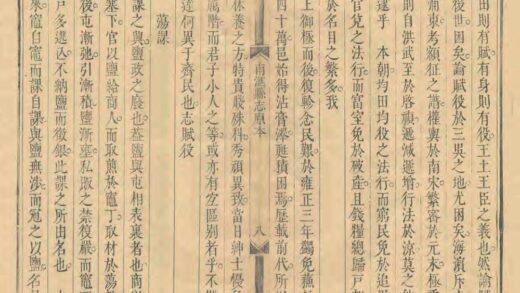 田則有賦有身則有役王土王臣之義也然論
後世困矣論賦役於三吳之地尤困矣海濱斥
浦東考額征之譜權輿於南宋繁密於元末極重
則自洪武至於啓禎遞減遞增行法於涼莫之
遂乎 本朝均田均役之法行而窮民免於追
官兌之法行而富室免於破產且錢糧總歸戶
於名目之繁多我
南匯縣志原本 八
上御極而後復軫念民艱於雍正三年蠲免蘇
四十萬邑治得沾膏澤甦積困焉歷載前代所
休養之方特貴賤殊科秀頑異致昔日紳士優
厲階而君子小人之等或亦有宜區別者乎不
達何異于齊民也志賦役
蕩課
課之興鹽政之廢也葢鹽與屯相表裏者也商
塞下官以鹽給商人而取煎於竈丁取材於蕩
後屯漸弛引漸積鹽漸壅私取之禁復嚴而竈
戶多逃入不納鹽而徵銀此課之所由名也
來竈自竈而課自課與鹽無涉而冠之以鹽名